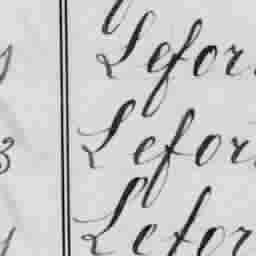 Lefor
3 Lefor
Lefor